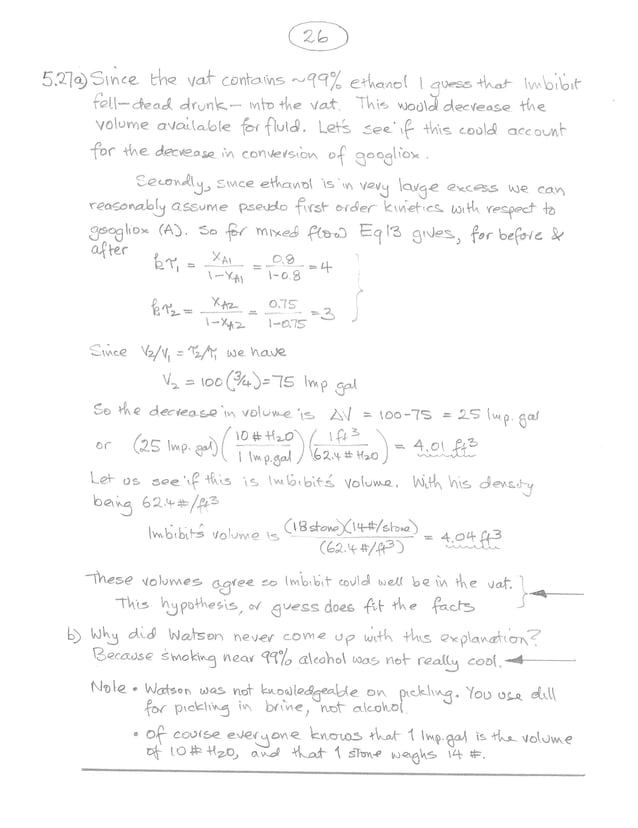 26
5.27a) Since the vat contains ~99% ethanol I guess that Imbibit
fell—dead drunk—into the vat. This would decrease the
volume available for fluid. Let's see if this could account
for the decrease in conversion of googliox.
Secondly, since ethanol is in very large excess we can
reasonably assume pseudo first order kinetics with respect to
googliox (A). So for mixed flow Eq 13 gives, for before &
after
kτ₁ = X_A1/(1-X_A1) = 0.8/(1-0.8) = 4
kτ₂ = X_A2/(1-X_A2) = 0.75/(1-0.75) = 3
Since V₂/V₁ = τ₂/τ₁ we have
V₂ = 100(3/4) = 75 Imp gal
So the decrease in volume is ΔV = 100-75 = 25 Imp. gal
or (25 Imp. gal)(10 # H₂O/1 Imp.gal)(1 ft³/62.4 # H₂O) = 4.01 ft³
Let us see if this is Imbibit's volume. With his density
being 62.4 #/ft³
Imbibit's volume is (18 stone)(14 #/stone)/(62.4 #/ft³) = 4.04 ft³
These volumes agree so Imbibit could well be in the vat.
This hypothesis, or guess does fit the facts
b) Why did Watson never come up with this explanation?
Because smoking near 99% alcohol was not really cool.
Note • Watson was not knowledgeable on pickling. You use dill
for pickling in brine, not alcohol.
• Of course everyone knows that 1 Imp.gal is the volume
of 10 # H₂O, and that 1 stone weighs 14 #.